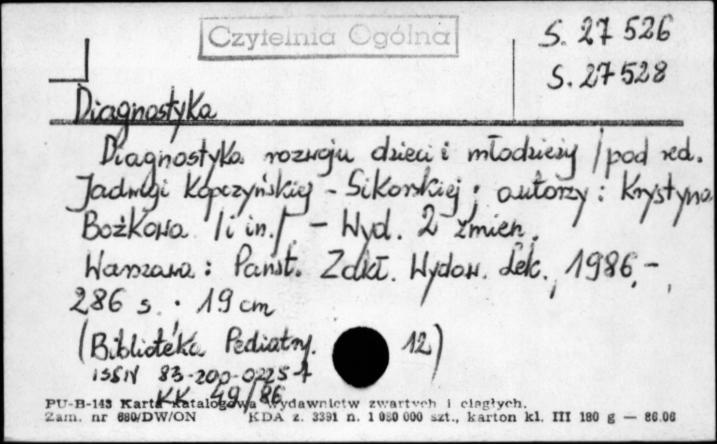 Czytelnia Ogólna
S. 27 526
S. 27 528
Diagnostyka
Diagnostyka rozwoju dzieci i młodzieży / pod red.
Jadwigi Kopczyńskiej - Sikorskiej ; autorzy : Krystyna
Bożkowa /i in./ - Wyd. 2 zmien.
Warszawa : Państ. Zakł. Wydaw. Lek., 1986,-
286 s. . 19 cm
(Biblioteka Pediatry. 12)
ISBN 83-200-0225-1
KK 49/86
PU-B-143 Karta katalogowa wydawnictw zwartych i ciągłych.
Zam. nr 680/DW/ON KDA z. 3391 n. 1 080 000 szt., karton kl. III 180 g — 86.06